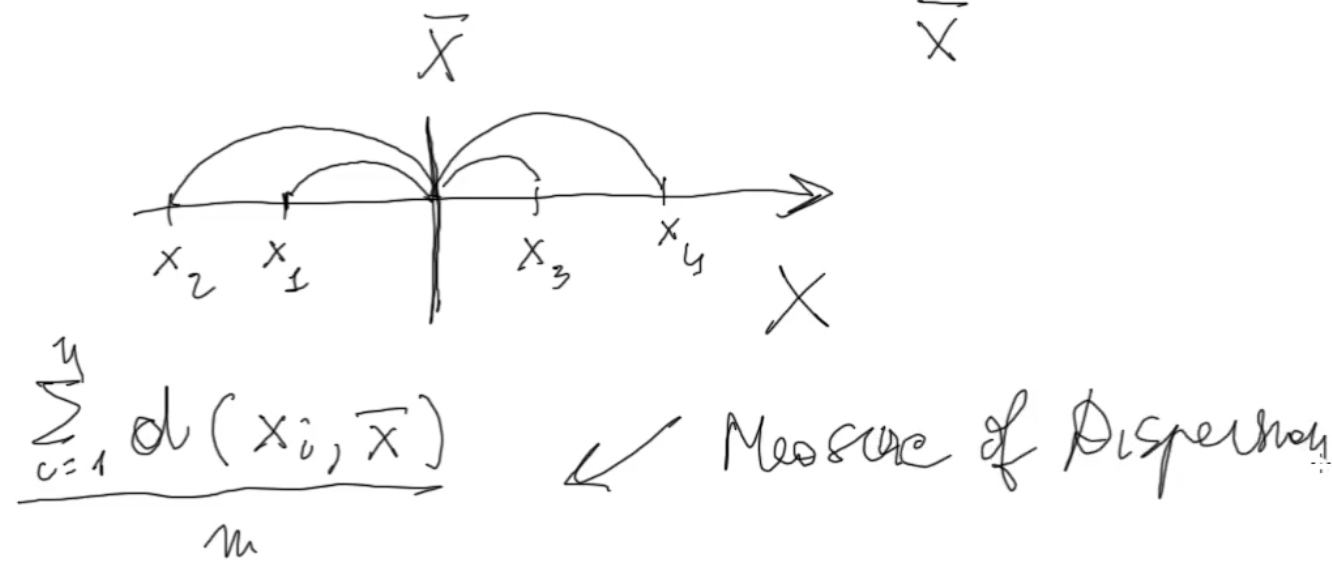 X̄ X̄
x₂ x₁ x₃ x₄
X
n
∑ d(xᵢ, x̄) ↙ Measure of Dispersion
i=1
n